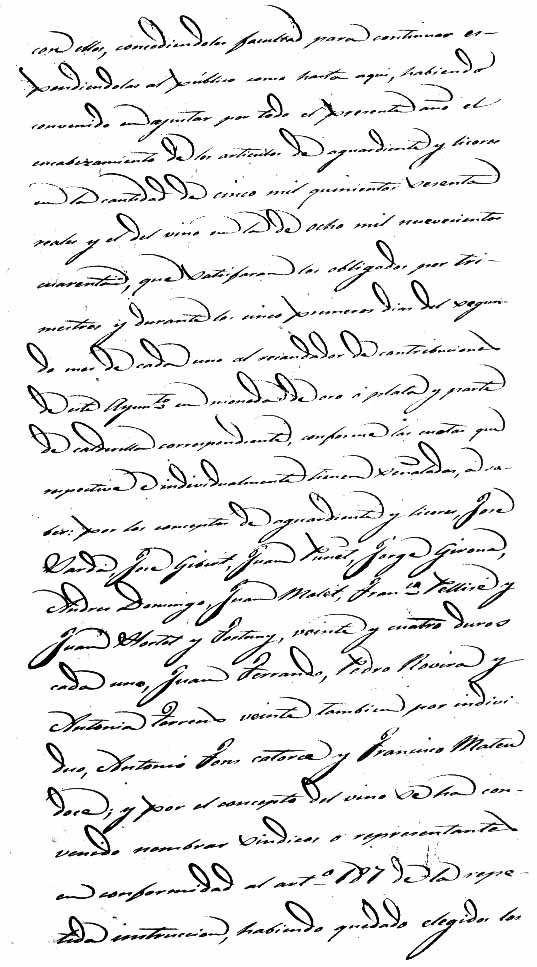 con ellos, concediendoles facultad para continuar es-
pendiendolas al público como hasta aqui, habiendo
convenido en ajustar por todo el presente año el
encabezamiento de los articulos de aguardiente y licores
en la cantidad de cinco mil quinientos sesenta
reales y el del vino en la de ocho mil nuevecientos
cuarenta, que satisfaran los obligados por tri-
mestres y durante los cinco primeros dias del segun-
do mes de cada uno al recaudador de contribuciones
de este Ayunto. en moneda de oro ó plata y parte
de calderilla correspondiente, conforme las cuotas que
respective é individualmente tienen señaladas, a sa-
ber: por los conceptos de aguardiente y licores, José
Sardá, José Gibert, Juan Punet, Jorge Girona,
Andres Domingo, Juan Malét, Franca. Pellisé y
Juan Hortet y Fortuny, veinte y cuatro duros
cada uno, Juan Ferrando, Pedro Rovira y
Antonia Torrens veinte tambien por indivi-
duo, Antonio Fons catorce y Francisco Mateu
doce; y por el concepto del vino se ha con-
venido nombrar sindicos o representantes
en conformidad al arto. 187 de la repe-
tida instruccion, habiendo quedado elegidos los